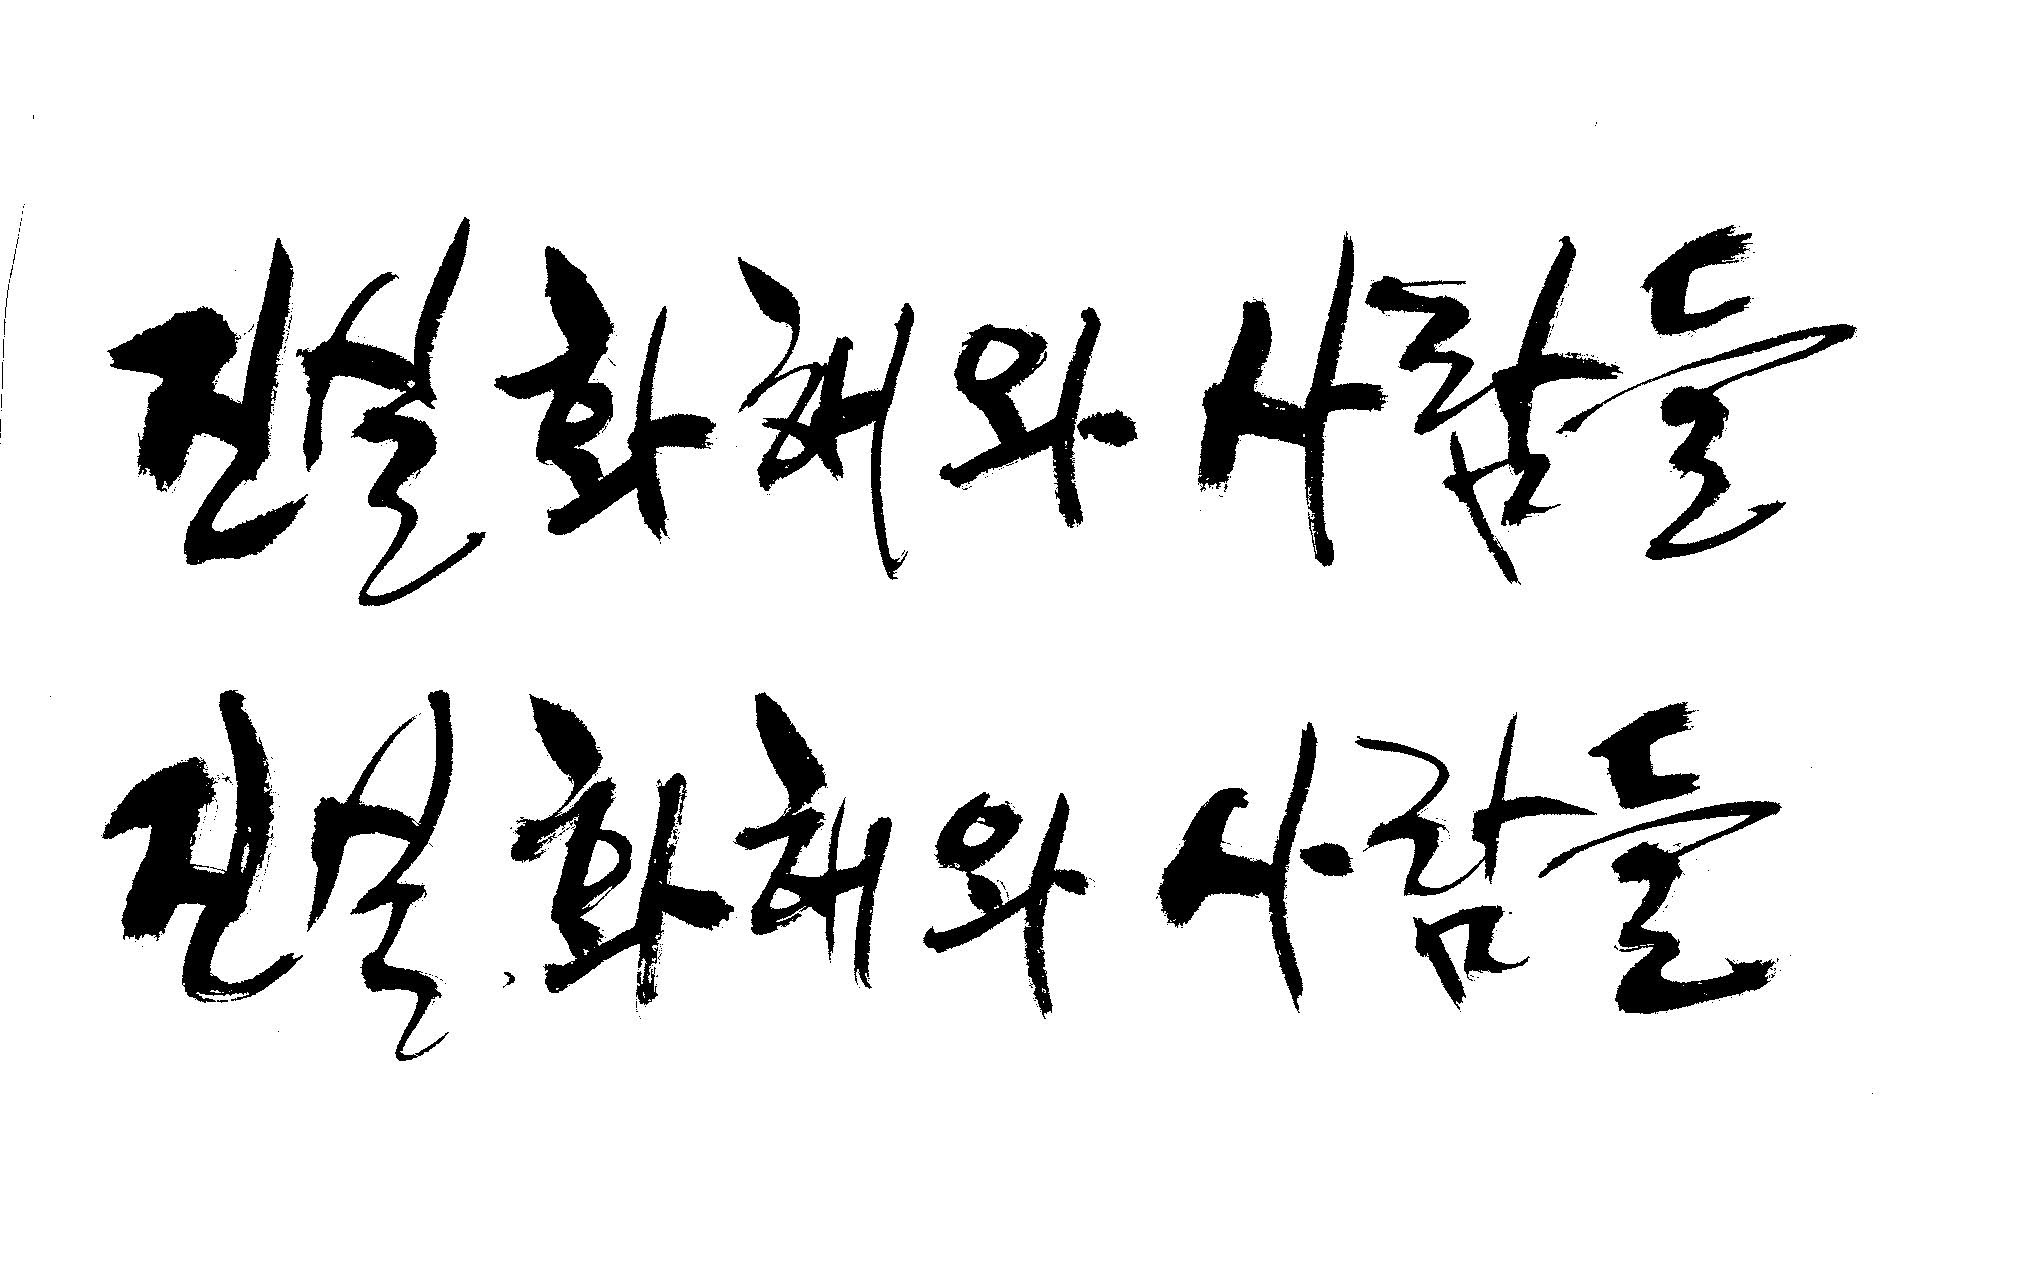 진실화해와 사람들
진실화해와 사람들